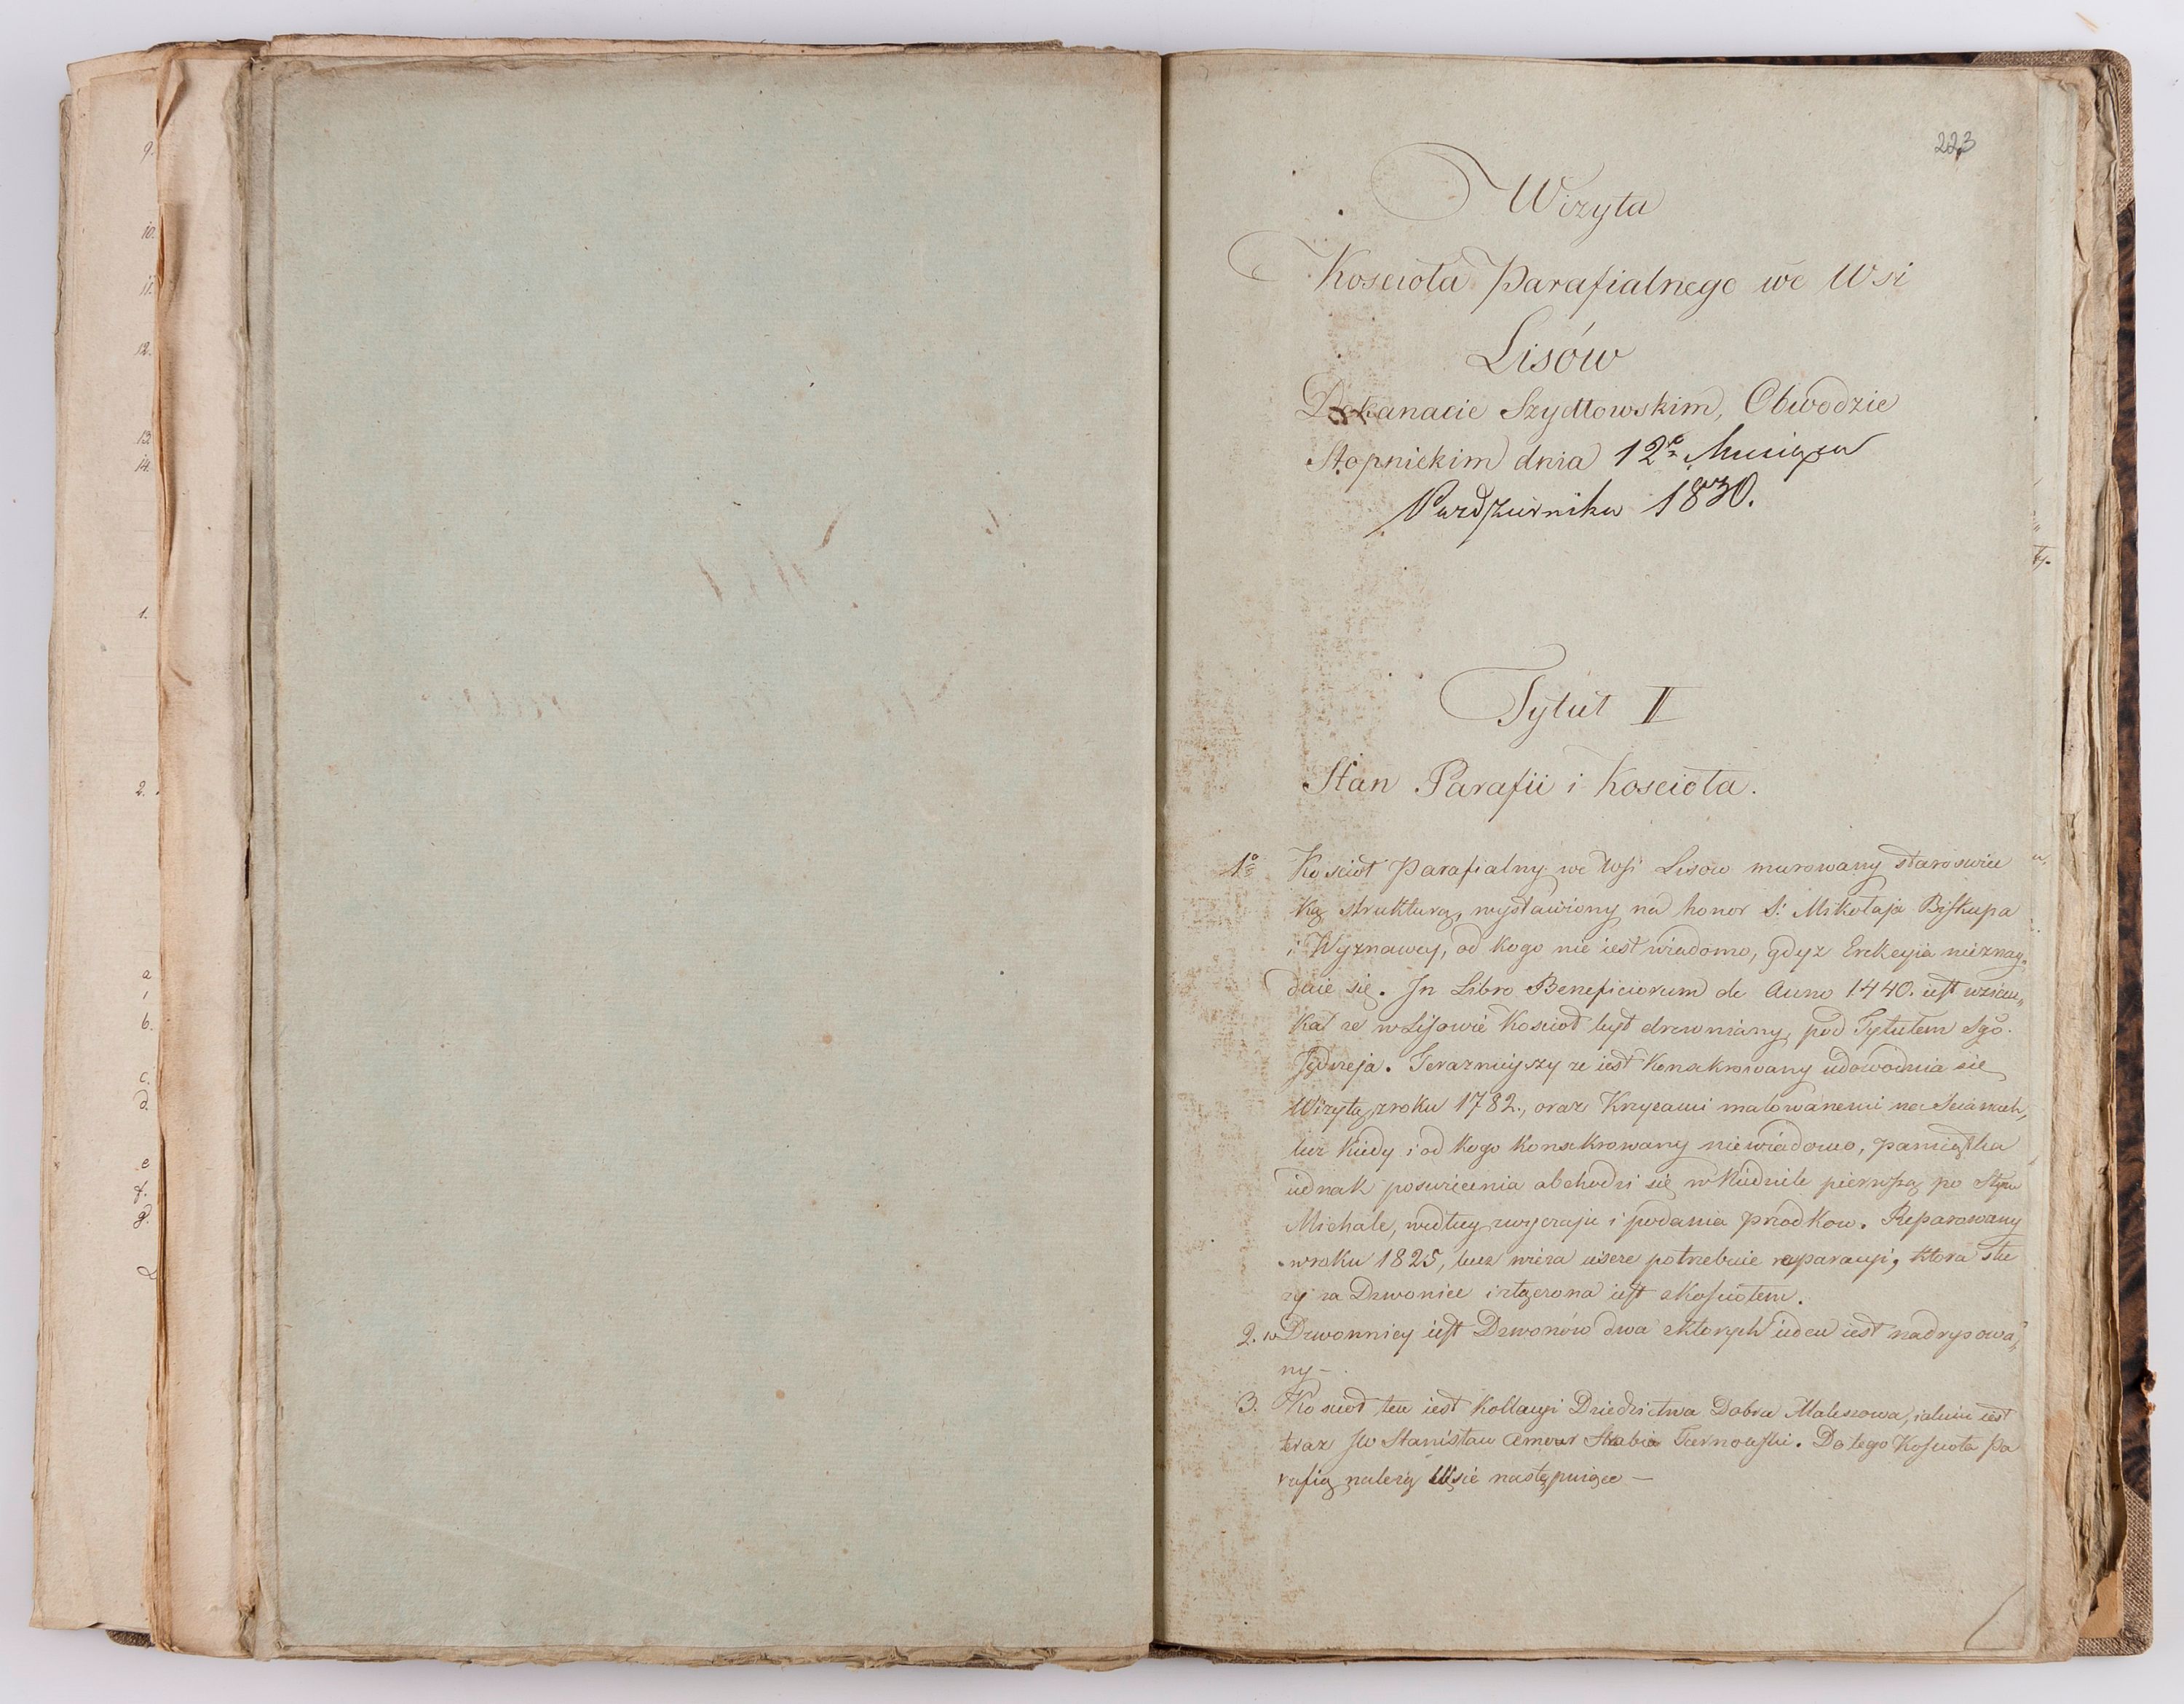 9.
10.
11.
12.
13.
14.
1.
2.
a
b.
c.
d.
e
f.
g.
223
Wizyta
Kościoła Parafialnego we Wsi
Lisów
Dekanacie Szydłowskim, Obwodzie
Stopnickim dnia 12º Miesiąca
Października 1830.
Tytuł II
Stan Parafii i Kościoła.
1º Kosciół Parafialny we Wsi Lisow murowany staroswiec
ką strukturą, wystawiony na honor S: Mikołaja Biskupa
i Wyznawcy, od kogo nie iest wiadomo, gdyz Erekcyia nieznay„
duie się. In Libro Beneficiorum de Anno 1440. iest wzmian„
ka ze w Lisowie Kosciół był drewniany, pod Tytułem Sgo.
Jędrzeja. Terazniejszy ze iest Konsekrowany udowodnia się
Wizytą zroku 1782., oraz Krzyzami malowanemi na Scianach,
lecz Kiedy i od Kogo Konsekrowany niewiadomo, pamiątka
iednak poswięcenia obchodzi się w Niedziele pierwszą po Stym
Michale, według zwyczaju i podania przodkow. Reparowany
wroku 1825, lecz wieza iescze potrzebuie reparacyi, ktora słu
zy za Dzwonice i złączona iest zKościołem.
2. w Dzwonnicy iest Dzwonów dwa zktorych ieden iest nadrysowa„
ny —
3. Kosciół ten iest Kollacyi Dziedzictwa Dobra Maleszowa, iakim iest
teraz JW Stanisław Amour Hrabia Tarnowski. Do tego Kościoła Pa
rafią należą Wsie następuiące —